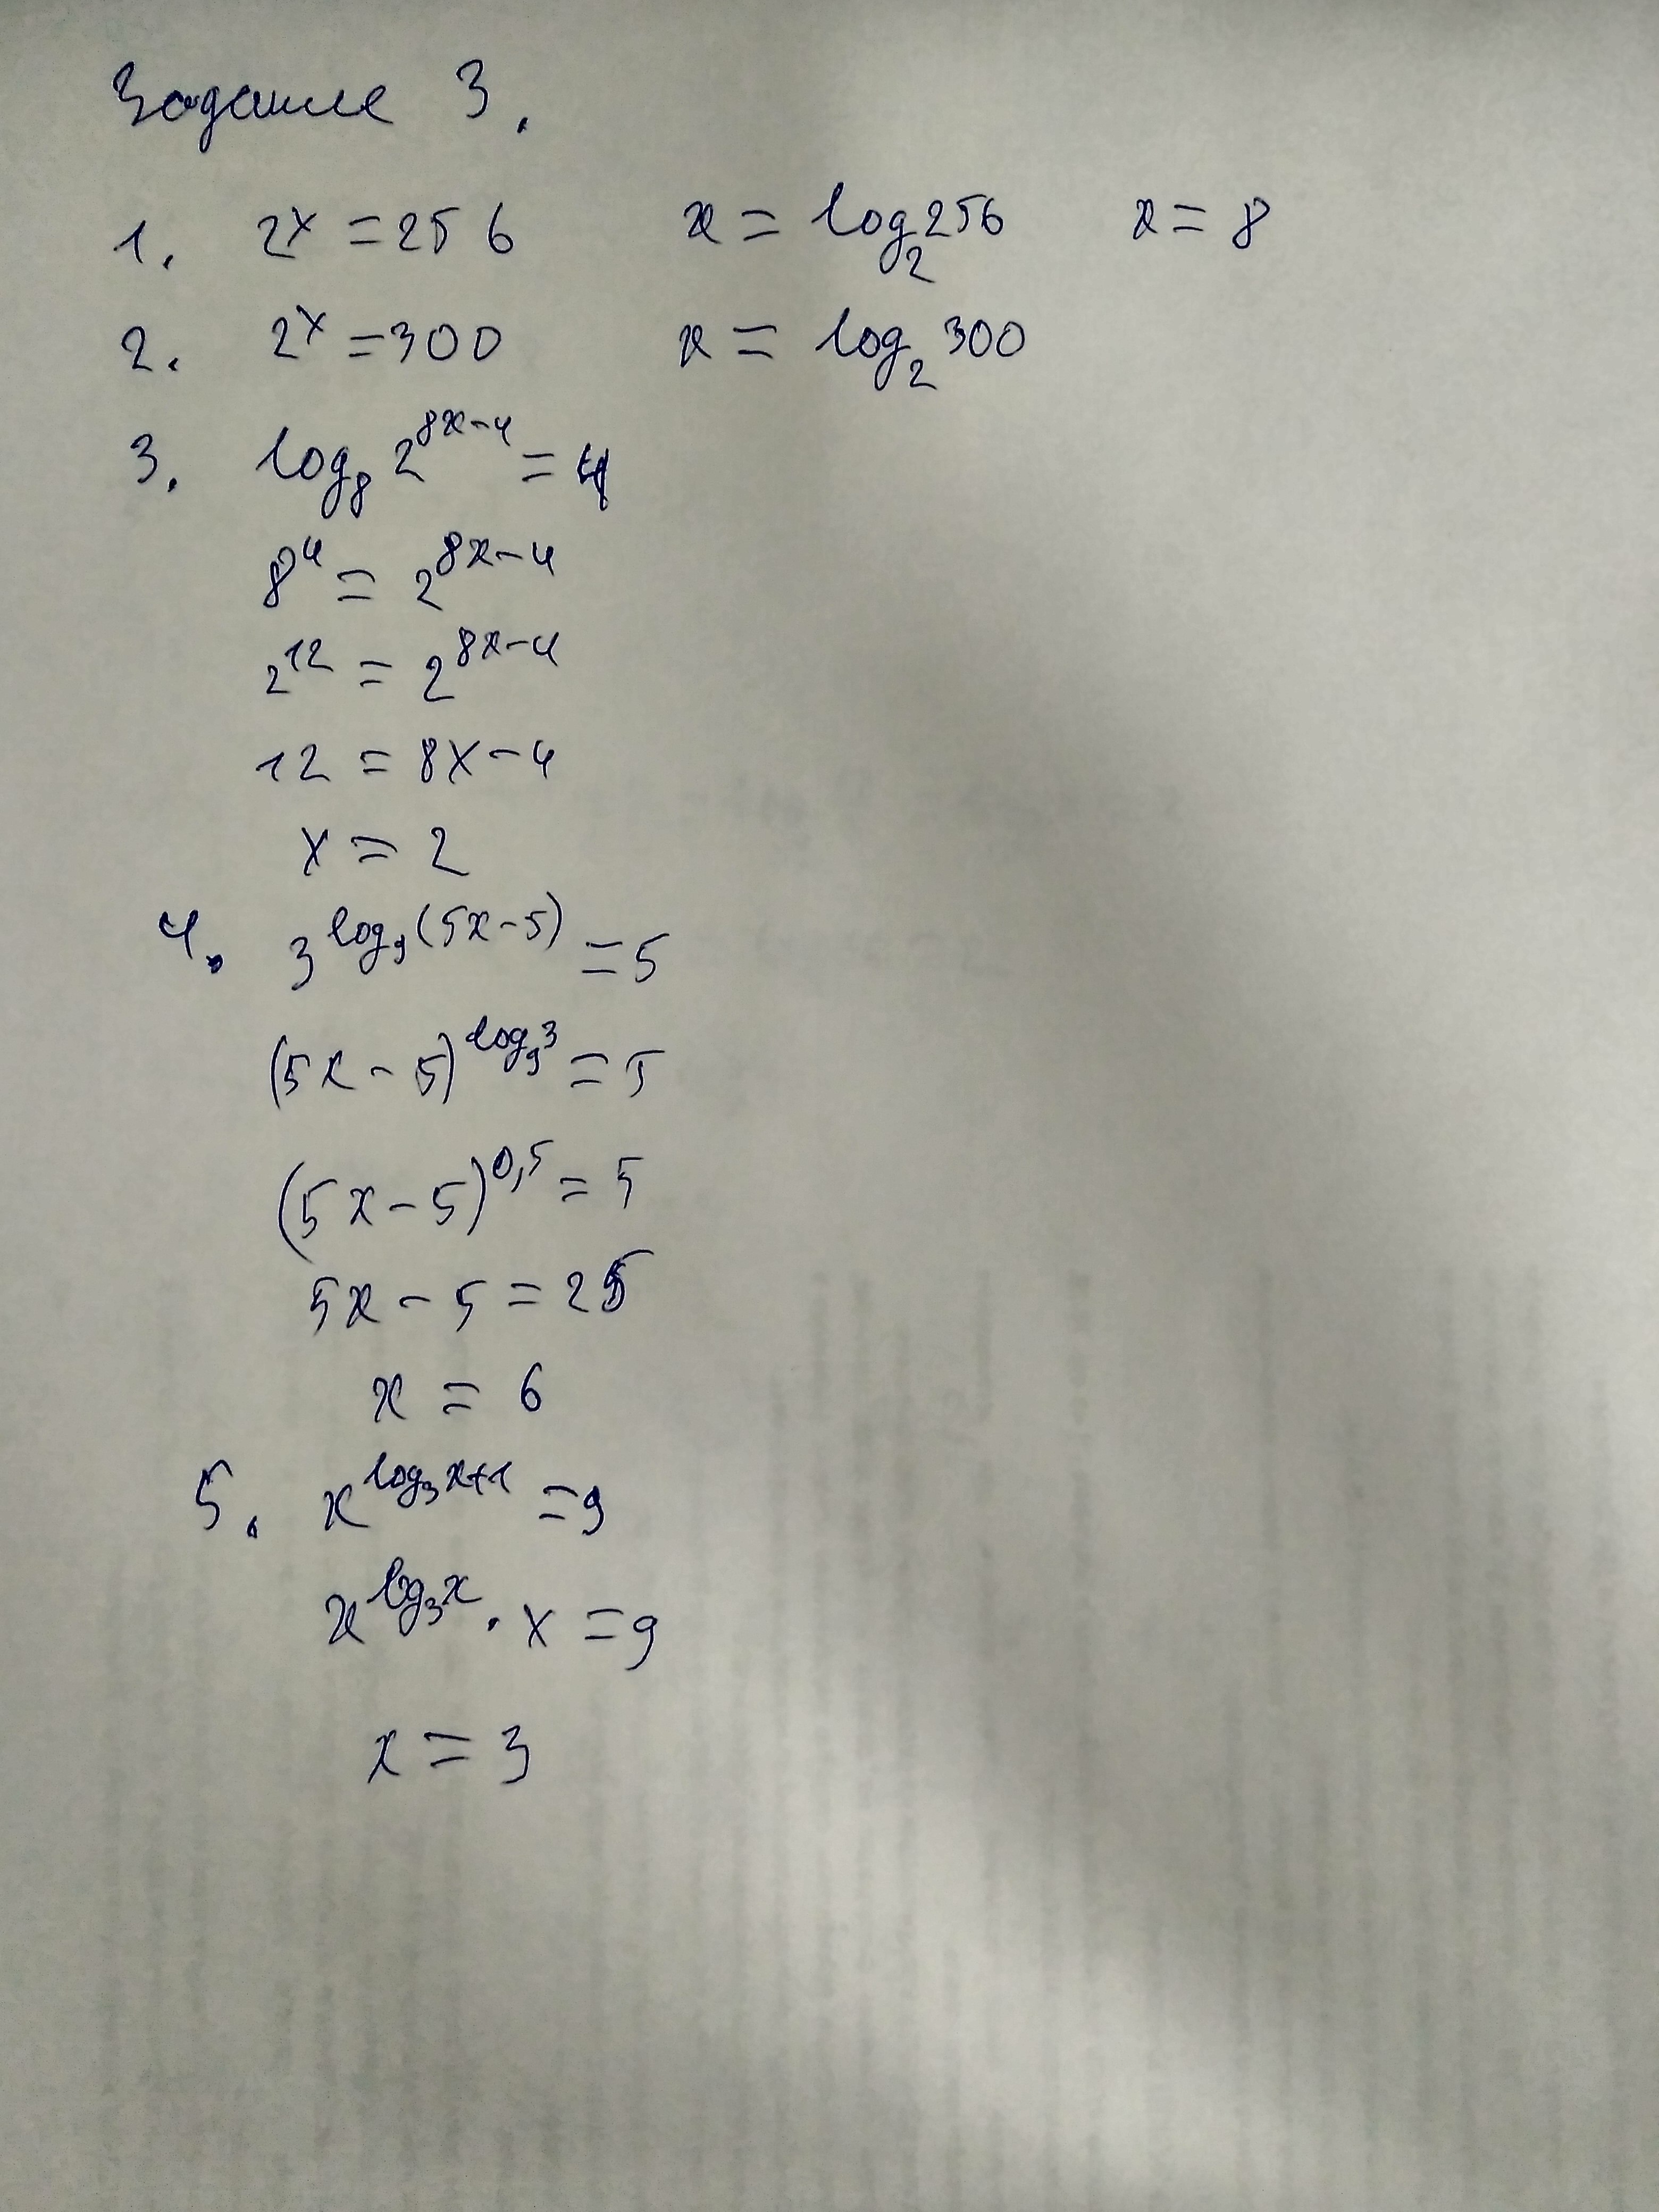 Задание 3.
1. 2^x = 256 x = log₂256 x = 8
2. 2^x = 300 x = log₂300
3. log₈ 2^(8x-4) = 4
8^4 = 2^(8x-4)
2^12 = 2^(8x-4)
12 = 8x-4
x = 2
4. 3^(log₉(5x-5)) = 5
(5x-5)^(log₉3) = 5
(5x-5)^0,5 = 5
5x-5 = 25
x = 6
5. x^(log₃x+1) = 9
x^(log₃x) · x = 9
x = 3